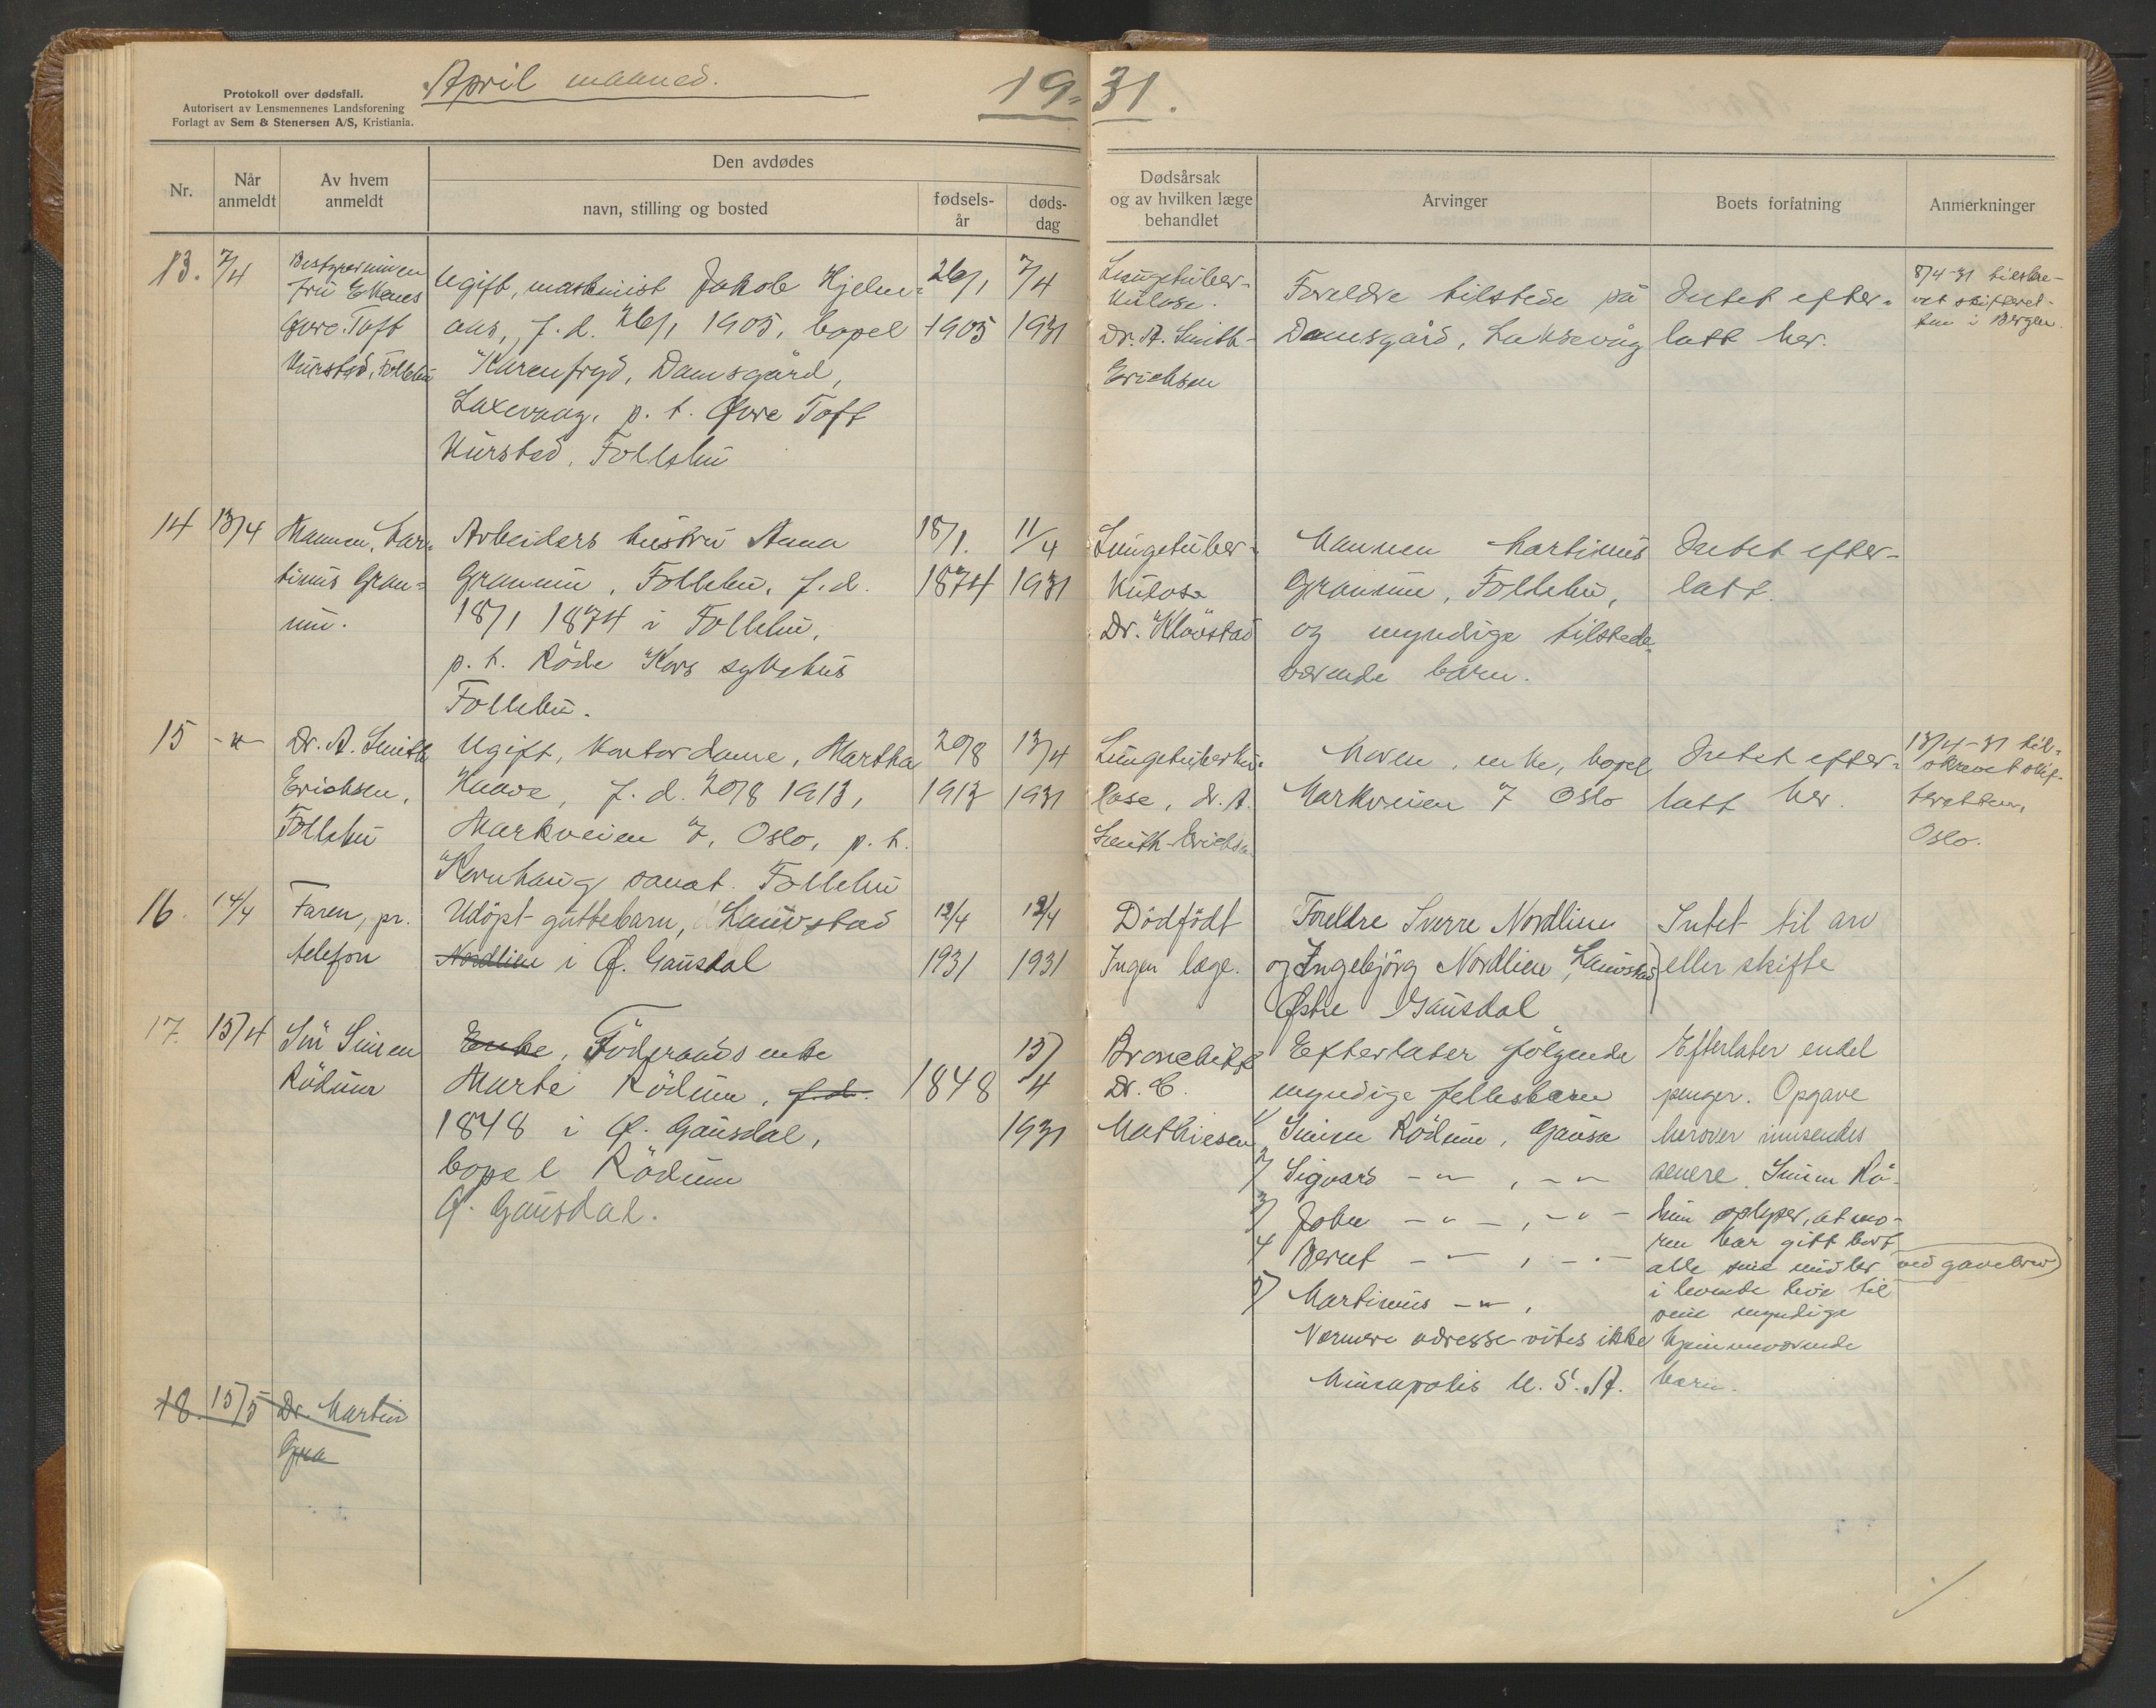 Protokoll over dødsfall.
Autorisert av Lensmennenes Landsforening
Forlagt av Sem & Stenersen A/S, Kristiania.
April maaned.
19-31.
Nr.
Når anmeldt
Av hvem anmeldt
Den avdødes
navn, stilling og bosted
fødsels-år
døds-dag
Dødsårsak og av hvilken læge behandlet
Arvinger
Boets forfatning
Anmerkninger
13.
7/4
Bestyrerinnen
fru
Øvre Toft
Kursted, Follebu
Ugift, maskinist Jakob Hjelm-
aas, f. d. 26/1 1905, bopel
Karenfryd, Damsgård,
Laxevaag, p. t. Øvre Toft
Kursted, Follebu
26/1
1905
7/4
1931
Lungetuber-
kulose.
Dr. A. Smith-
Erichsen
Foreldre tilstede på
Damsgård, Laksevåg
Intet efter-
latt her.
8/4-31 tilskre-
vet skifteret-
ten i Bergen.
14
13/4
Mannen, Mar-
tinus Gran-
um.
Arbeiders hustru Anna
Granum, Follebu, f. d.
18/1 1874 i Follebu,
p. t. Röde Kors sykehus
Follebu.
18/1.
1874
11/4
1931
Lungetuber-
kulose
Dr. Klövstad
Mannen Martinus
Granum, Follebu,
og myndige tilstede-
værende barn.
Intet efter-
latt.
15
-"-
Dr. A. Smith
Erichsen,
Follebu
Ugift, kontordame, Martha
Haave, f. d. 20/8 1913,
Markveien 7, Oslo, p. t.
Kornhaug sanat. Follebu
20/8
1913
13/4
1931
Lungetuberku-
lose, dr. A.
Smith-Erichsen
Moren, enke, bopel
Markveien 7 Oslo
Intet efter-
latt her.
13/4-31 til-
skrevet skif-
teretten,
Oslo.
16.
14/4
Faren, pr.
telefon
Udöpt guttebarn, Lauvstad
Nordlien i Ø. Gausdal
12/4
1931
12/4
1931
Dödfödt
Ingen læge.
Foreldre Sverre Nordlien
og Ingebjörg Nordlien, Lauvstad
Østre Gausdal
Intet til arv
eller skifte
17.
15/4
Sön Simen
Rödum
Enke, Föderaads enke
Marte Rödum, f. d.
1848 i Ø. Gausdal,
bopel Rödum
Ø. Gausdal.
1848
15/4
1931
Bronchitt
Dr. C.
Mathiesen
Efterlater fölgende
myndige fellesbarn
1/ Simen Rödum, Gausa
2/ Sigvard -"-, -"-
3/ John -"-, -"-
4 Bernt -"-, -"-
5/ Martinus -"-,
Nærmere adresse vites ikke
Mineapolis U. S. A.
Efterlater endel
penger. Opgave
herover innsendes
senere. Simen Rö-
dum oplyser, at mo-
ren har gitt bort
alle sine midler ved gavebrev
i levende live til
sine myndige
hjemmeværende
barn.
18.
15/5
Dr. Martin